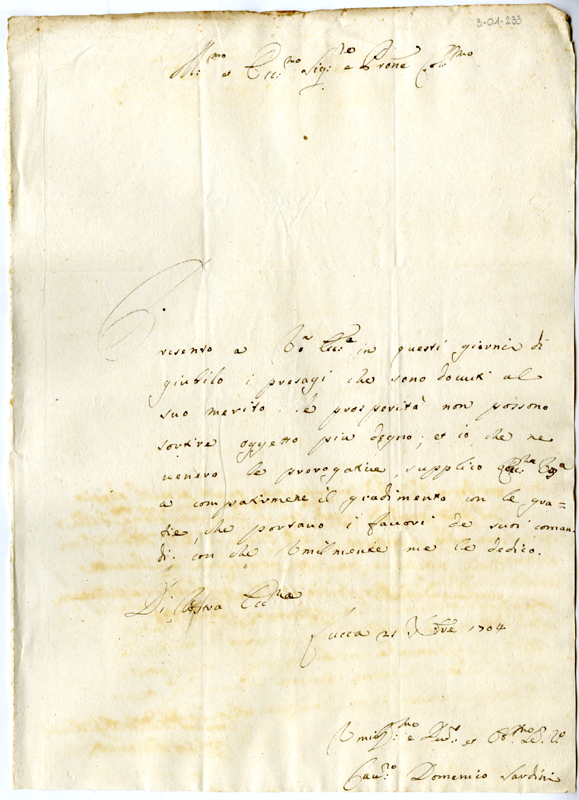 3-01-233
Ill.mo et Ecc.mo Sig.re e Prone Col.mo
Presento a V.a Ecc.a in questi giorni di
giubilo i presagi che sono dovuti al
suo merito. Le prosperità non possono
sortire oggetto più degno; et io, che ne
venero le prerogative, supplico
a compartirmene il gradimento con le gra=
die, che portano i favori de suoi coman
di: con che Umilmente me le dedico.
Di Vostra Ecc.na
Lucca 21 Xbre 1704
Umiliss.mo e Dev.mo et Obb.mo
Cav.ro Domenico Sardini